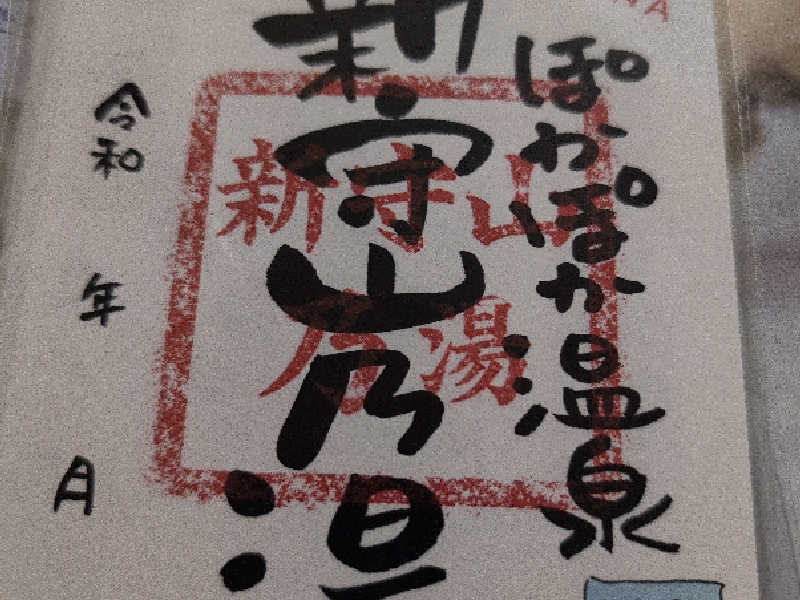 ぽかぽか温泉
新守山乃湯
令和
年
月
新守山
乃湯